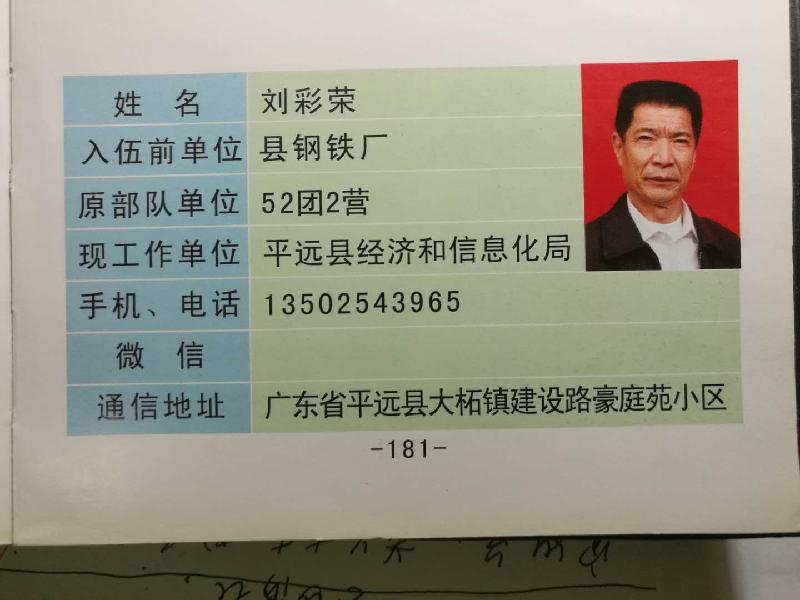 姓 名 刘彩荣
入伍前单位 县钢铁厂
原部队单位 52团2营
现工作单位 平远县经济和信息化局
手机、电话 13502543965
微 信
通信地址 广东省平远县大柘镇建设路豪庭苑小区
-181-